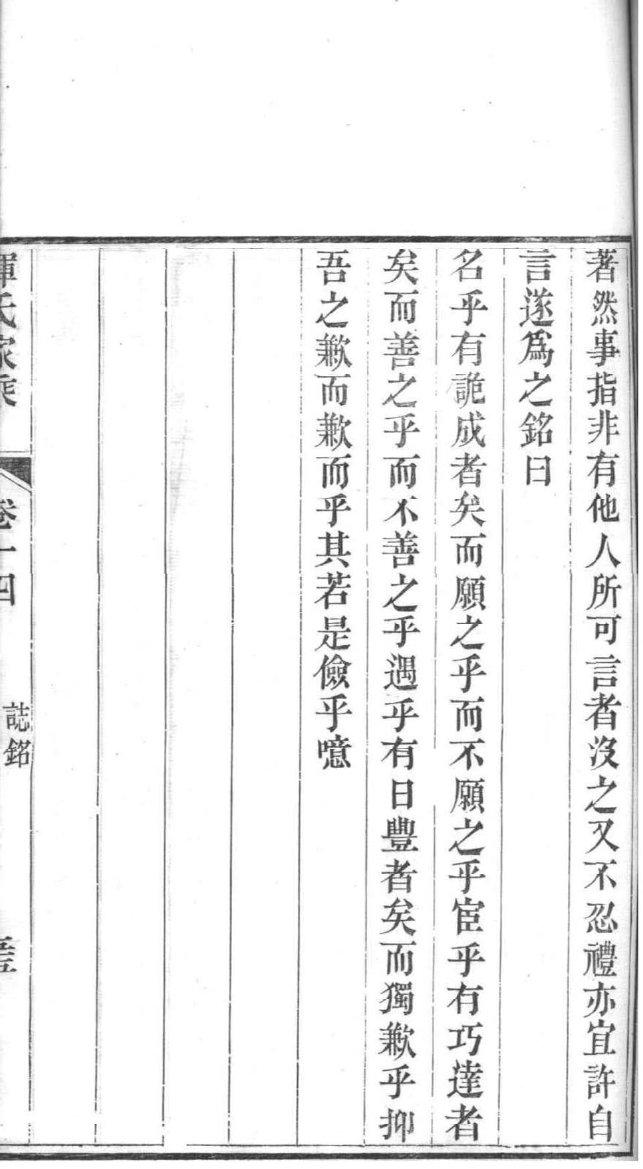 著然事指非有他人所可言者沒之又不忍禮亦宜許自
言遂為之銘曰
名乎有詭成者矣而願之乎而不願之乎宦乎有巧達者
矣而善之乎而不善之乎遇乎有日豐者矣而獨歉乎抑
吾之歉而歉而乎其若是儉乎噫
惲氏家乘
卷十四
誌銘